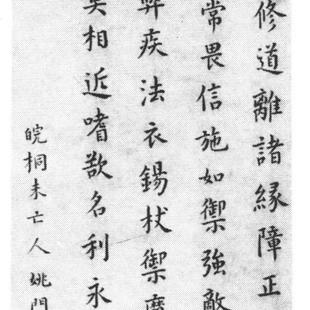 修道離諸緣障正
常畏信施如禦強敵
弊疾法衣錫杖禦魔
矣相近嗜歡名利永
皖桐未亡人姚門